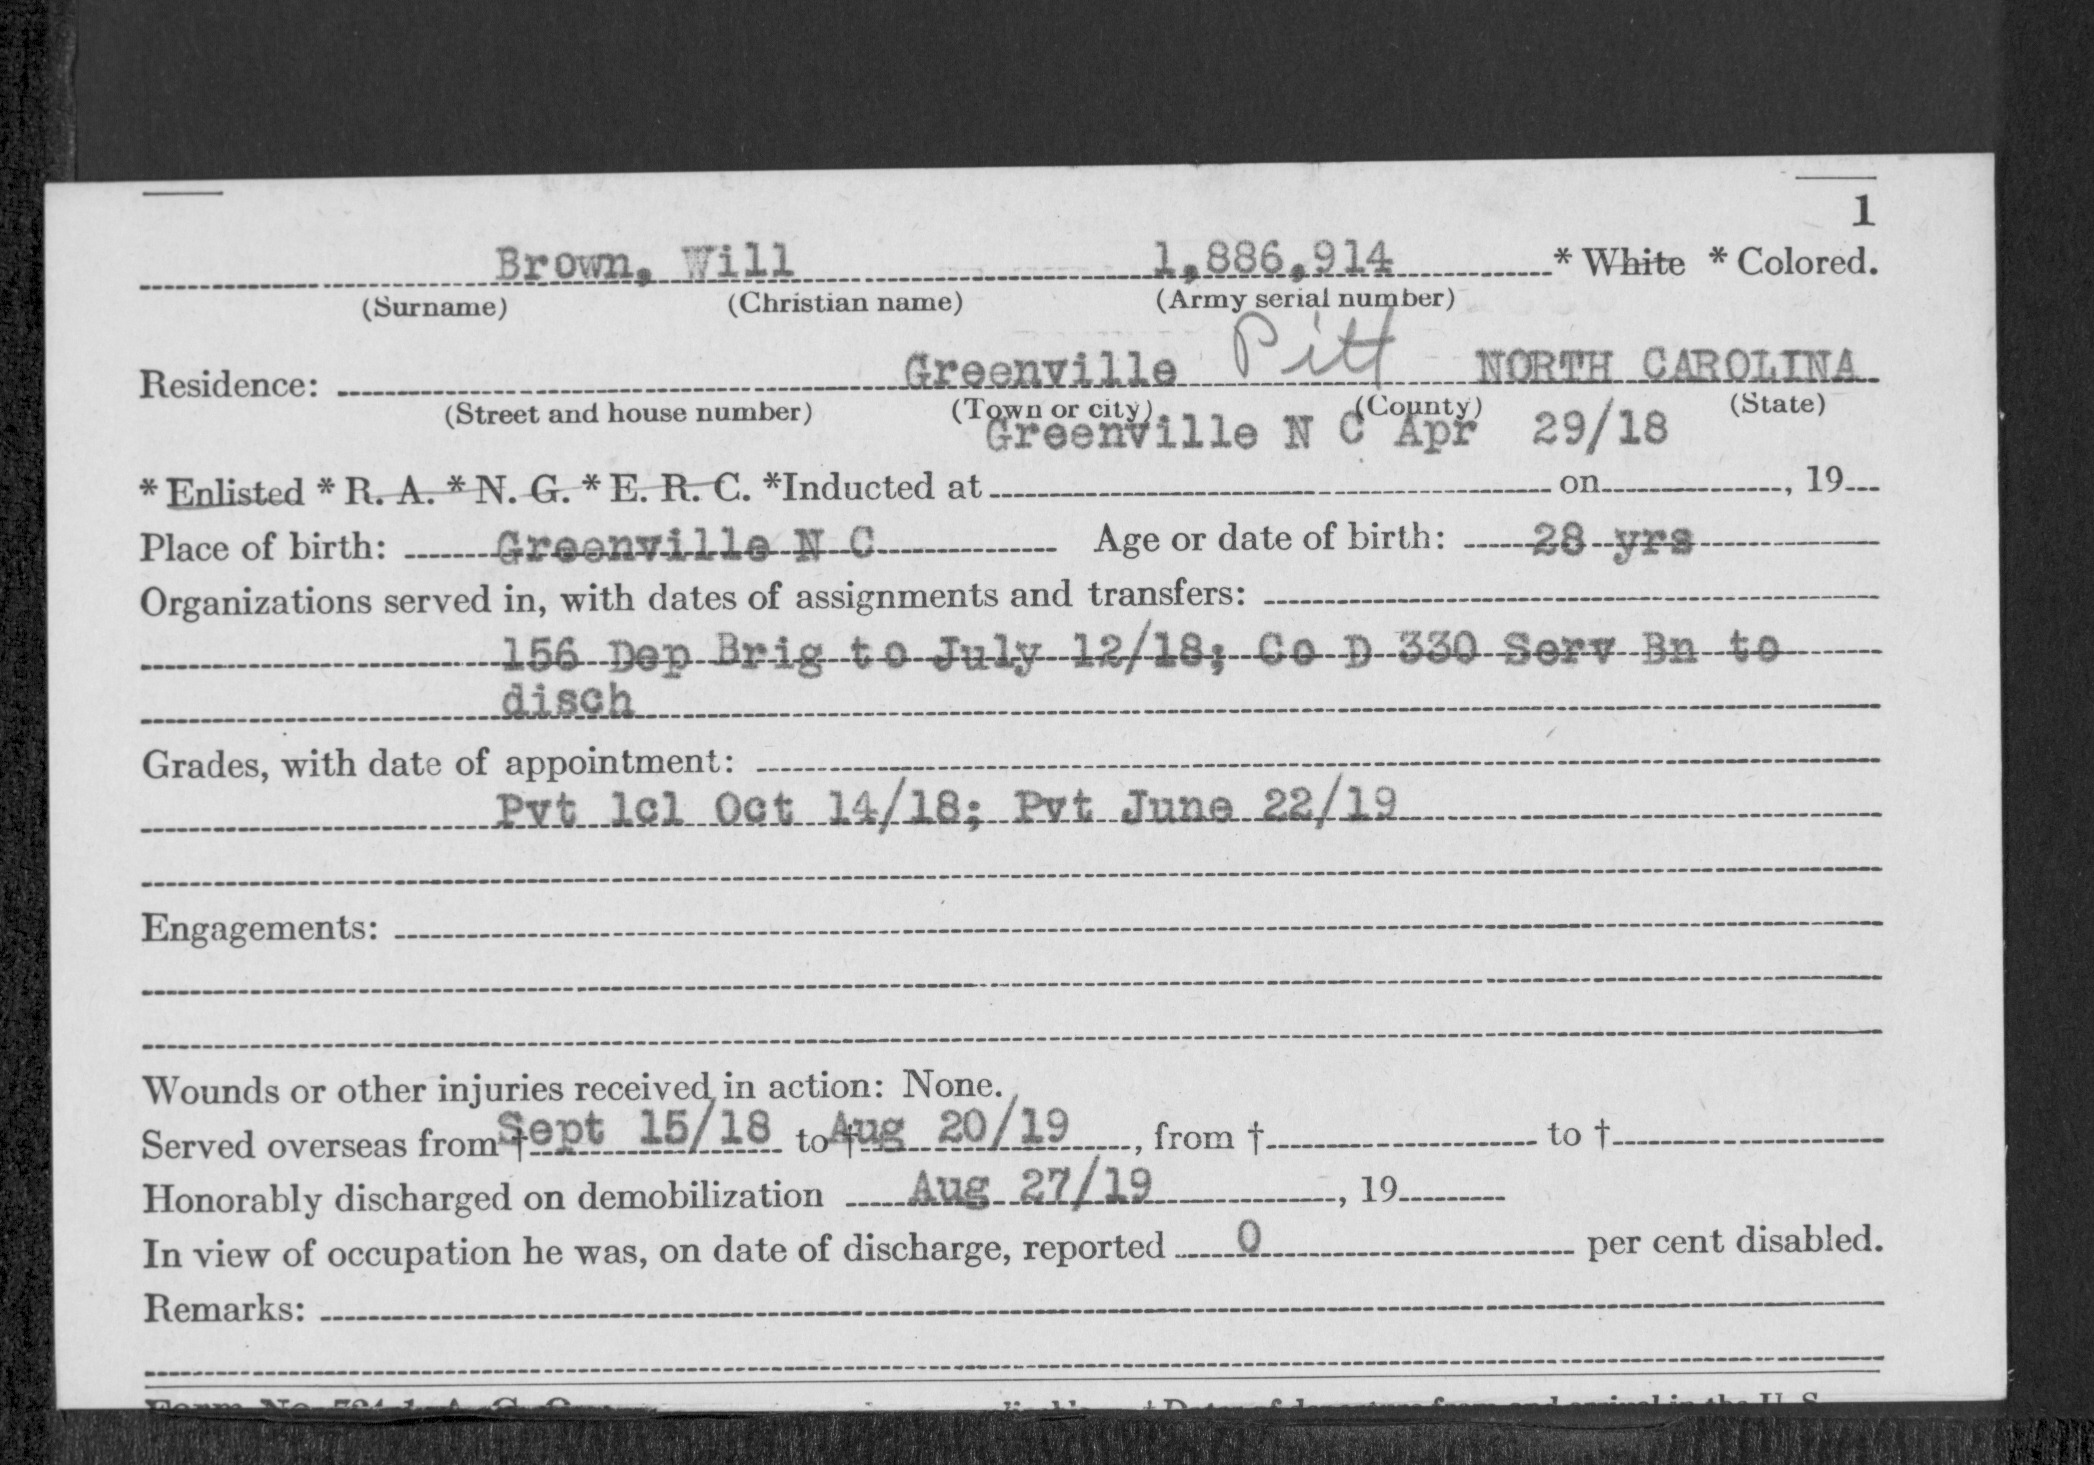 1
Brown, Will 1,886,914 * White * Colored.
(Surname) (Christian name) (Army serial number)
Residence: Greenville Pitt NORTH CAROLINA
(Street and house number) (Town or city) (County) (State)
Greenville N C Apr 29/18
* Enlisted * R. A. * N. G. * E. R. C. *Inducted at on , 19
Place of birth: Greenville N C Age or date of birth: 28 yrs
Organizations served in, with dates of assignments and transfers:
156 Dep Brig to July 12/18; Co D 330 Serv Bn to
disch
Grades, with date of appointment:
Pvt 1cl Oct 14/18; Pvt June 22/19
Engagements:
Wounds or other injuries received in action: None.
Served overseas from † Sept 15/18 to † Aug 20/19, from † to †
Honorably discharged on demobilization Aug 27/19, 19
In view of occupation he was, on date of discharge, reported 0 per cent disabled.
Remarks: